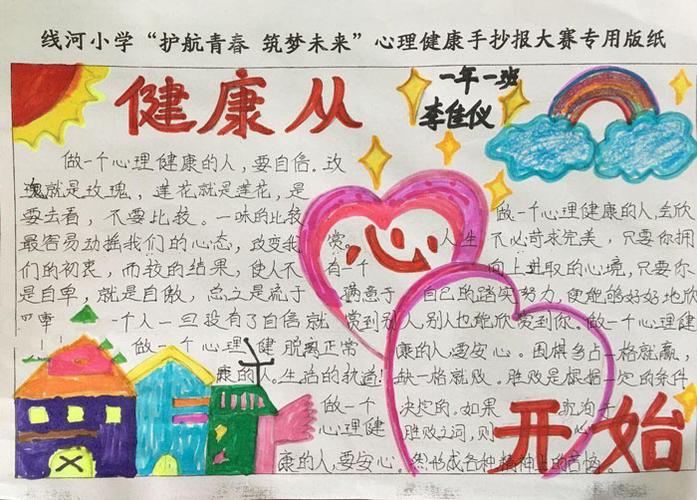 线河小学“护航青春 筑梦未来”心理健康手抄报大赛专用版纸
健康从心开始
一年一班
李佳仪
做一个心理健康的人，要自信。玫
瑰就是玫瑰，莲花就是莲花，是
要去看，不要比较。一味的比较
最容易动摇我们的心态，改变我
们的初衷，而较的结果，使人不
是自卑，就是自傲，总之是流于
一个人一旦没有了自信就
做一个心理健 脱离正常
康的人。生活的轨道！
做一个心理健康的人，会欣
赏。 人生不必苛求完美，只要你拥
有一个 向上进取的心境，只要你
满意于 自己的踏实努力，便能够好好地欣
赏到别人，别人也能欣赏到你。做一个心理健
康的人，要安心。围棋多占一格就赢，
缺一格就败。胜败是根据一定的条件
做一个 决定的。如果
心理健 胜败之词，则
康的人，要安心。